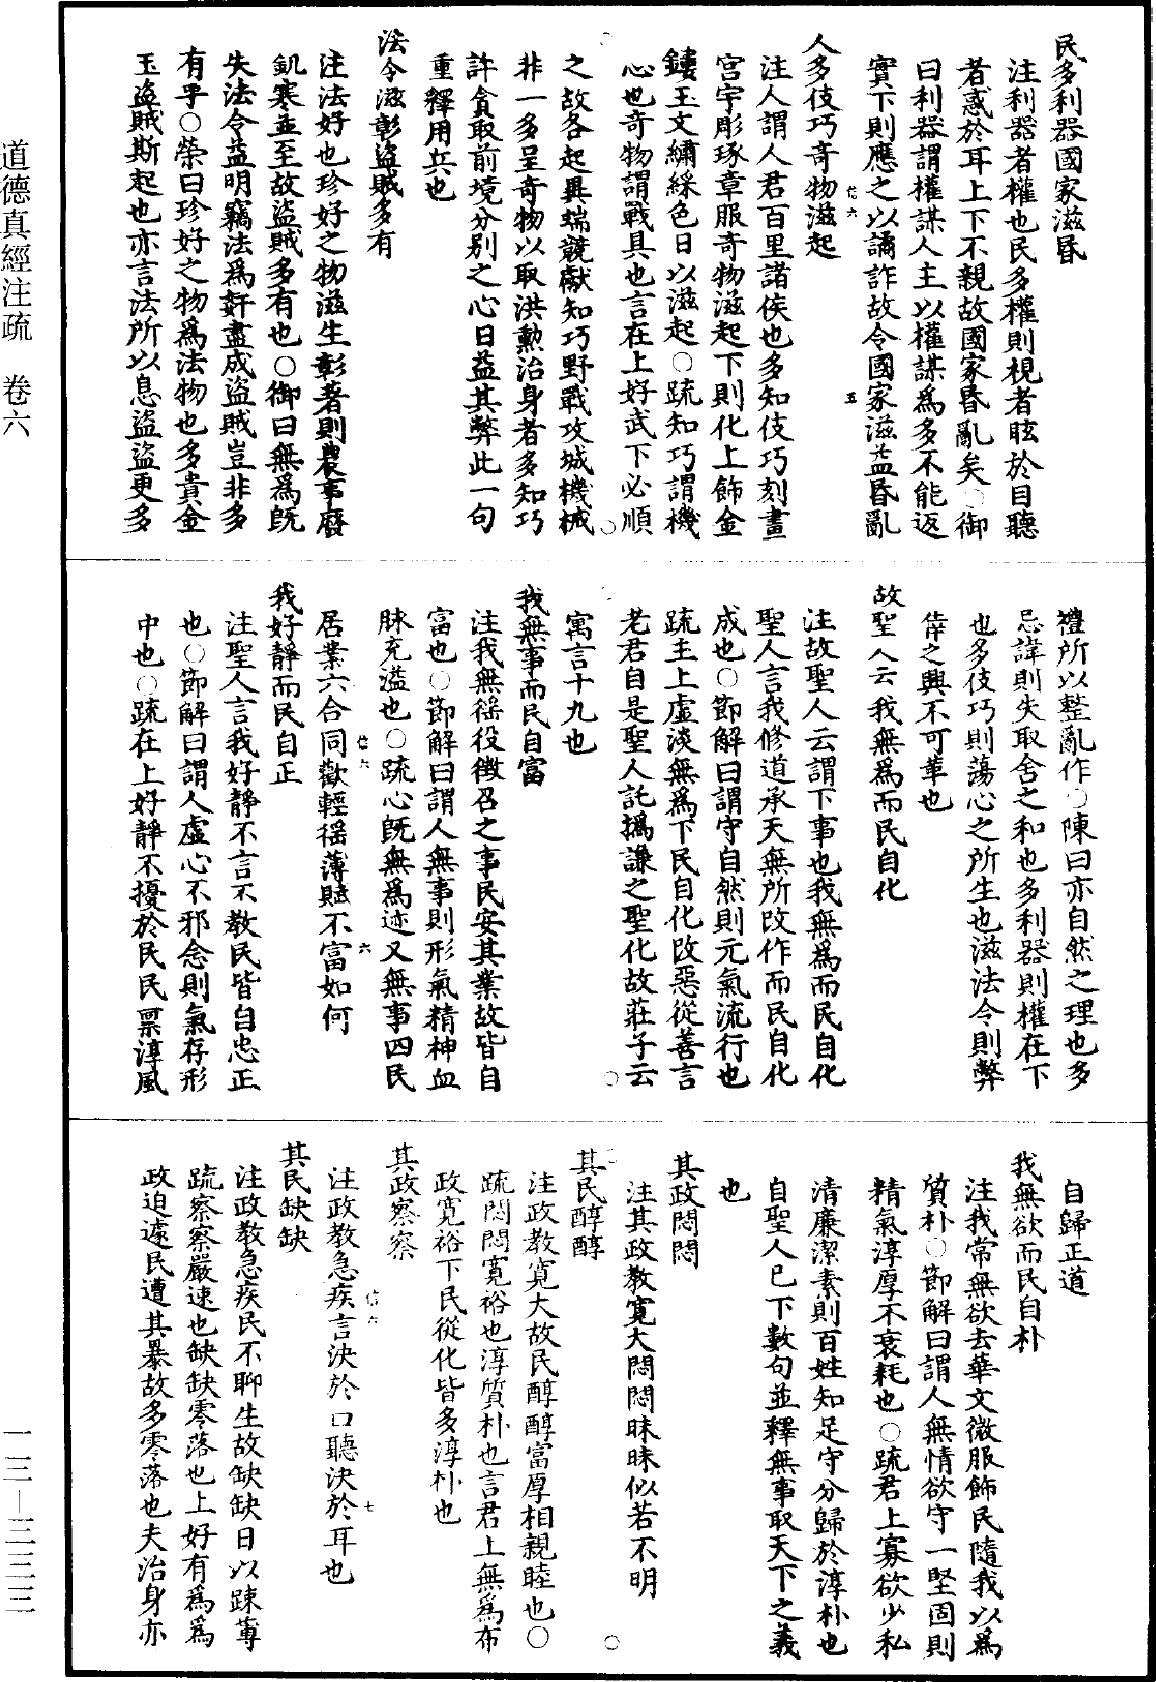 民多利器國家滋昬
注利器者權也民多權則視者眩於目聽
者惑於耳上下不親故國家昬亂矣○御
曰利器謂權謀人主以權謀爲多不能返
實下則應之以譎詐故令國家滋益昬亂
信六
五
人多伎巧奇物滋起
注人謂人君百里諸侯也多知伎巧刻畫
宫宇彫琢章服奇物滋起下則化上飾金
鏤玉文繡綵色日以滋起○疏知巧謂機
心也奇物謂戰具也言在上好武下必順
之故各起異端競獻知巧野戰攻城機械
非一多呈奇物以取洪勲治身者多知巧
許貪取前境分别之心日益其弊此一句
重釋用兵也
法令滋彰盗賊多有
注法好也珍好之物滋生彰著則農事廢
飢寒並至故盗賊多有也○御曰無爲旣
失法令益明竊法爲姧盡成盗賊豈非多
有乎○榮曰珍好之物爲法物也多貴金
玉盗賊斯起也亦言法所以息盗盗更多
禮所以整亂作○陳曰亦自然之理也多
忌諱則失取舍之和也多利器則權在下
也多伎巧則蕩心之所生也滋法令則弊
倖之興不可革也
故聖人云我無爲而民自化
注故聖人云謂下事也我無爲而民自化
聖人言我修道承天無所改作而民自化
成也○節解曰謂守自然則元氣流行也
疏主上虚淡無爲下民自化改惡從善言
老君自是聖人託撝謙之聖化故莊子云
寓言十九也
我無事而民自富
注我無徭役徴召之事民安其業故皆自
富也○節解曰謂人無事則形氣精神血
脉充溢也○疏心旣無爲迹又無事四民
居業六合同歡輕徭薄賦不富如何
信六
六
我好靜而民自正
注聖人言我好靜不言不教民皆自忠正
也○節解曰謂人虚心不邪念則氣存形
中也○疏在上好靜不擾於民民禀淳風
自歸正道
我無欲而民自朴
注我常無欲去華文微服飾民隨我以爲
質朴○節解曰謂人無情欲守一堅固則
精氣淳厚不衰耗也○疏君上寡欲少私
清廉潔素則百姓知足守分歸於淳朴也
自聖人已下數句並釋無事取天下之義
也
其政悶悶
注其政教寛大悶悶昧昧似若不明
其民醇醇
注政教寛大故民醇醇富厚相親睦也○
疏悶悶寛裕也淳質朴也言君上無爲布
政寛裕下民從化皆多淳朴也
其政察察
注政教急疾言決於口聽決於耳也
信六
七
其民缺缺
注政教急疾民不聊生故缺缺日以踈薄
疏察察嚴速也缺缺零落也上好有爲爲
政迫遽民遭其暴故多零落也夫治身亦
道德真經注疏　卷六
一三—三三三